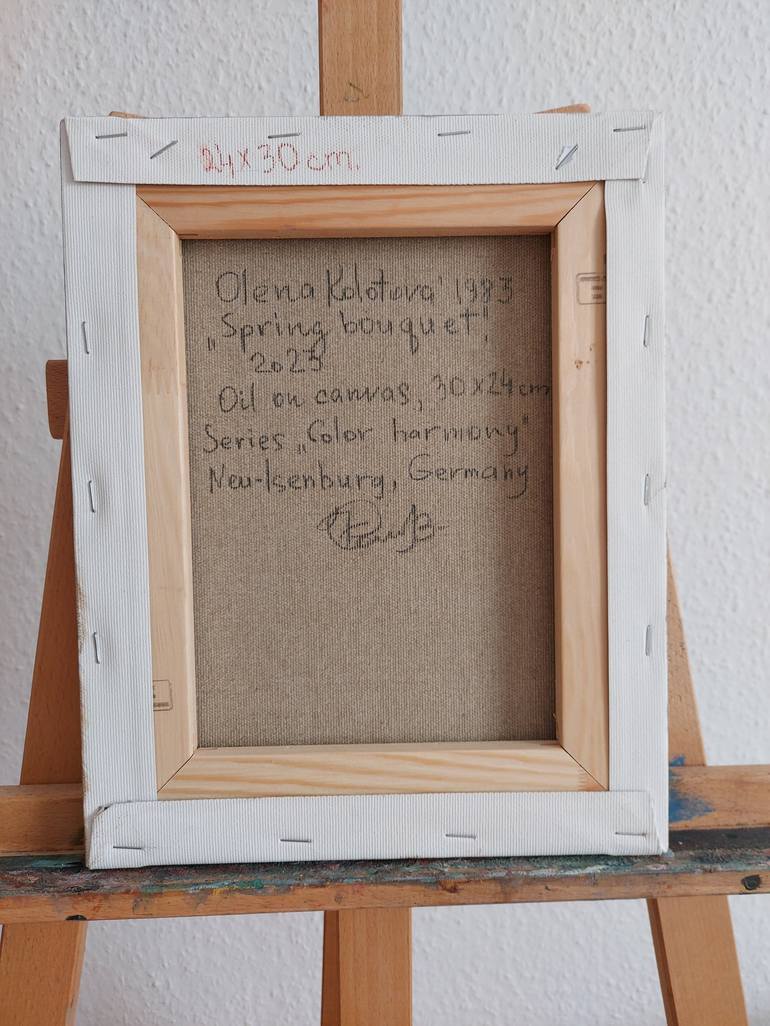 24x30 cm.
Olena Kolotova' 1983
„Spring bouquet",
2023
Oil on canvas, 30x24 cm
Series „Color harmony"
Neu-Isenburg, Germany